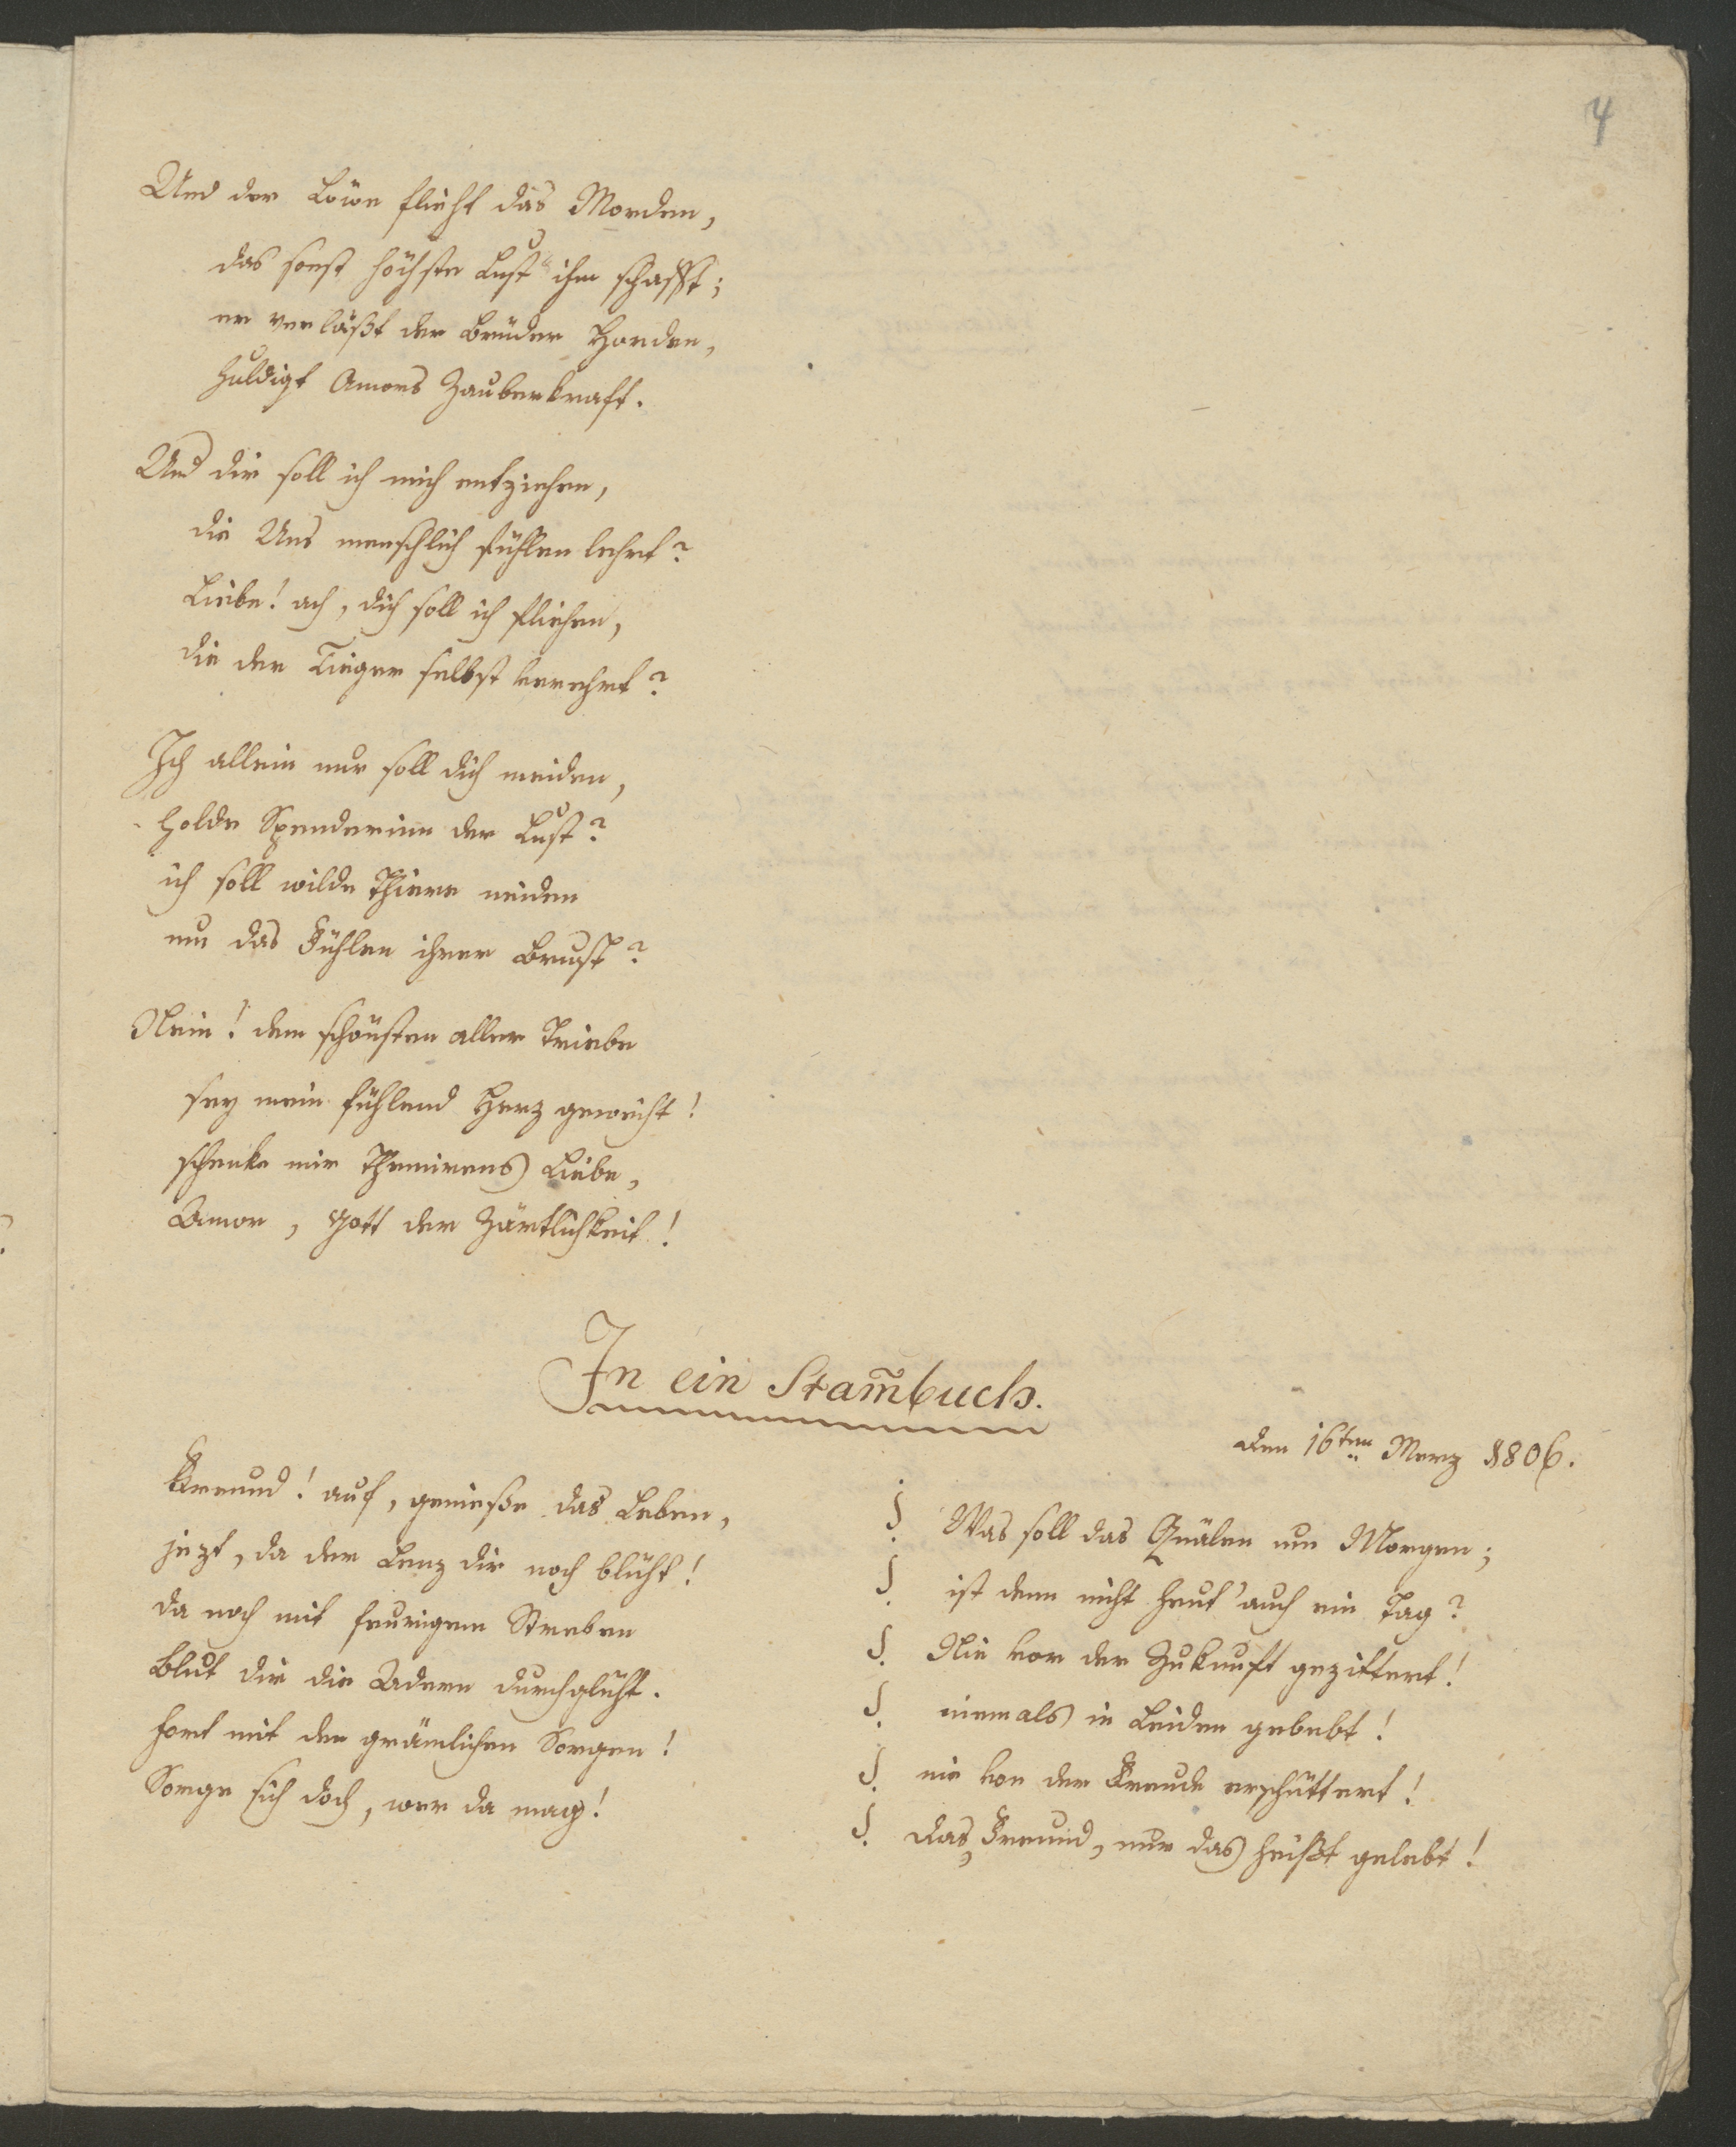 4
Und der Löwe flieht das Morden,
das sonst höchste Lust ihm schafft;
er verläßt der Brüder Horden,
huldigt Amors Zauberkraft.
Und dir soll ich mich entziehen,
die Uns menschlich fühlen lehrt?
Liebe! ach, dich soll ich fliehen,
die der Tieger selbst verehrt?
Ich allein nur soll dich meiden,
holde Spenderinn der Lust?
ich soll wilde Thiere neiden
um das Fühlen ihrer Brust?
Nein! dem schönsten aller Triebe
sey mein fühlend Herz geweiht!
schenke mir Themirens Liebe,
Amor, Gott der Zärtlichkeit!
In ein Stam̄buch.
den 16ten Merz 1806.
Freund! auf, genieße das Leben,
jezt, da der Lenz dir noch blüht!
da noch mit feurigem Streben
Blut dir die Adern durchglüht.
fort mit den grämlichen Sorgen!
Sorge sich doch, wer da mag!
§ Was soll das Quälen um Morgen;
§ ist denn nicht heut' auch ein Tag?
§ Nie vor der Zukunft gezittert!
§ niemals in Leiden gebebt!
§ nie von der Freude erschüttert!
§ das, Freund, nur das heißt gelebt!